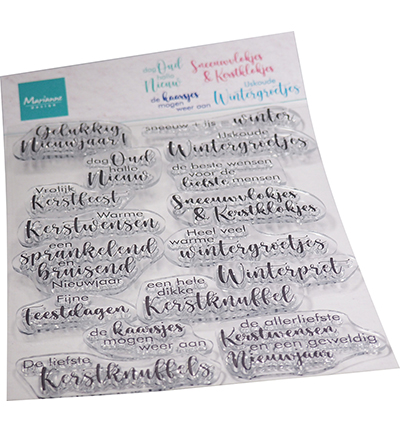 Marianne
design
dag Oud
hallo
Nieuw
Sneeuwvlokjes
& Kerstklokjes
de kaarsjes
mogen
weer aan
IJskoude
Wintergroetjes
Gelukkig
Nieuwjaar!
sneeuw + ijs = winter
dag Oud
hallo
Nieuw
IJskoude
Wintergroetjes
de beste wensen
voor de
liefste mensen
Vrolijk
Kerstfeest
Sneeuwvlokjes
& Kerstklokjes
Warme
Kerstwensen
Heel veel
warme
wintergroetjes
een
sprankelend
en
bruisend
Nieuwjaar
Winterpret
Fijne
feestdagen
een hete
dikke
Kerstknuffel
de kaarsjes
mogen
weer aan
de allerliefste
Kerstwensen
en een geweldig
Nieuwjaar
De liefste
Kerstknuffels